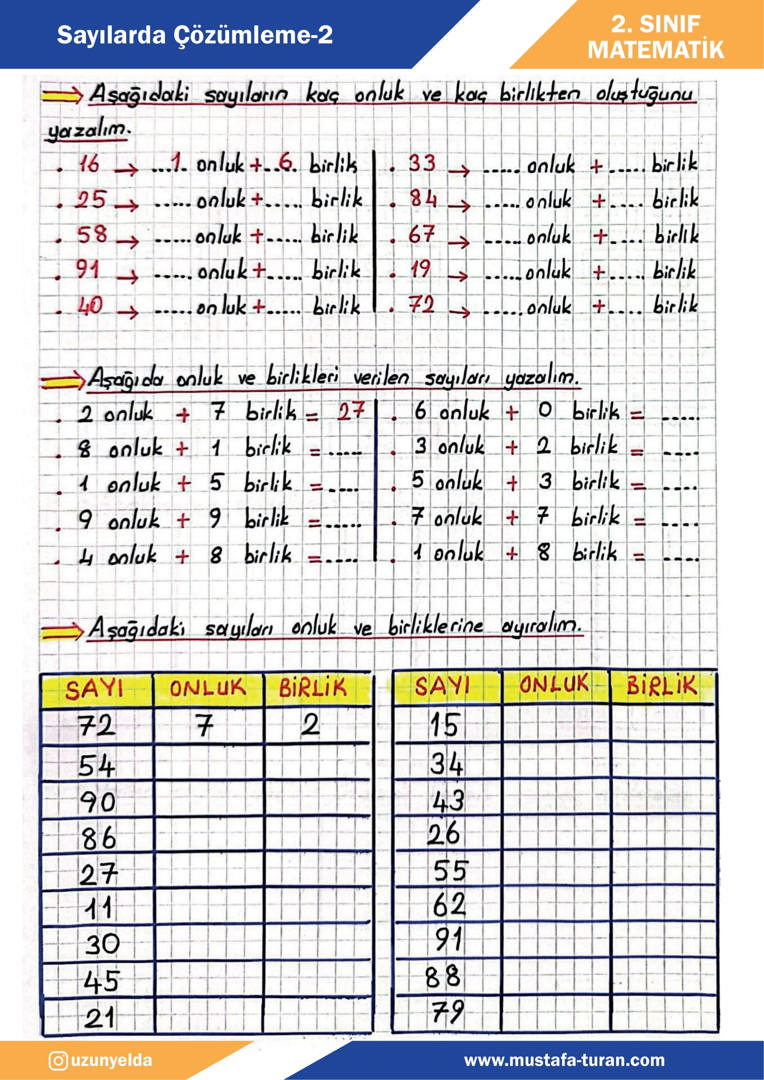 Sayılarda Çözümleme-2
2. SINIF
MATEMATİK
Aşağıdaki sayıların kaç onluk ve kaç birlikten oluştuğunu
yazalım.
. 16 → ...1. onluk +..6. birlik
. 25 → ...... onluk +...... birlik
. 58 → ...... onluk +...... birlik
. 91 → ...... onluk +...... birlik
. 40 → ...... onluk +...... birlik
. 33 → ...... onluk + ..... birlik
. 84 → ...... onluk + .... birlik
. 67 → ...... onluk + .... birlik
. 19 → ...... onluk + .... birlik
. 72 → ...... onluk + .... birlik
Aşağıda onluk ve birlikleri verilen sayıları yazalım.
. 2 onluk + 7 birlik = 27
. 8 onluk + 1 birlik = .....
. 1 onluk + 5 birlik = .....
. 9 onluk + 9 birlik = .....
. 4 onluk + 8 birlik = .....
. 6 onluk + 0 birlik = .....
. 3 onluk + 2 birlik = ....
. 5 onluk + 3 birlik = ....
. 7 onluk + 7 birlik = ....
. 1 onluk + 8 birlik = ....
Aşağıdaki sayıları onluk ve birliklerine ayıralım.
SAYI ONLUK BİRLİK
72 7 2
54
90
86
27
11
30
45
21
SAYI ONLUK BİRLİK
15
34
43
26
55
62
91
88
79
uzunyelda
www.mustafa-turan.com